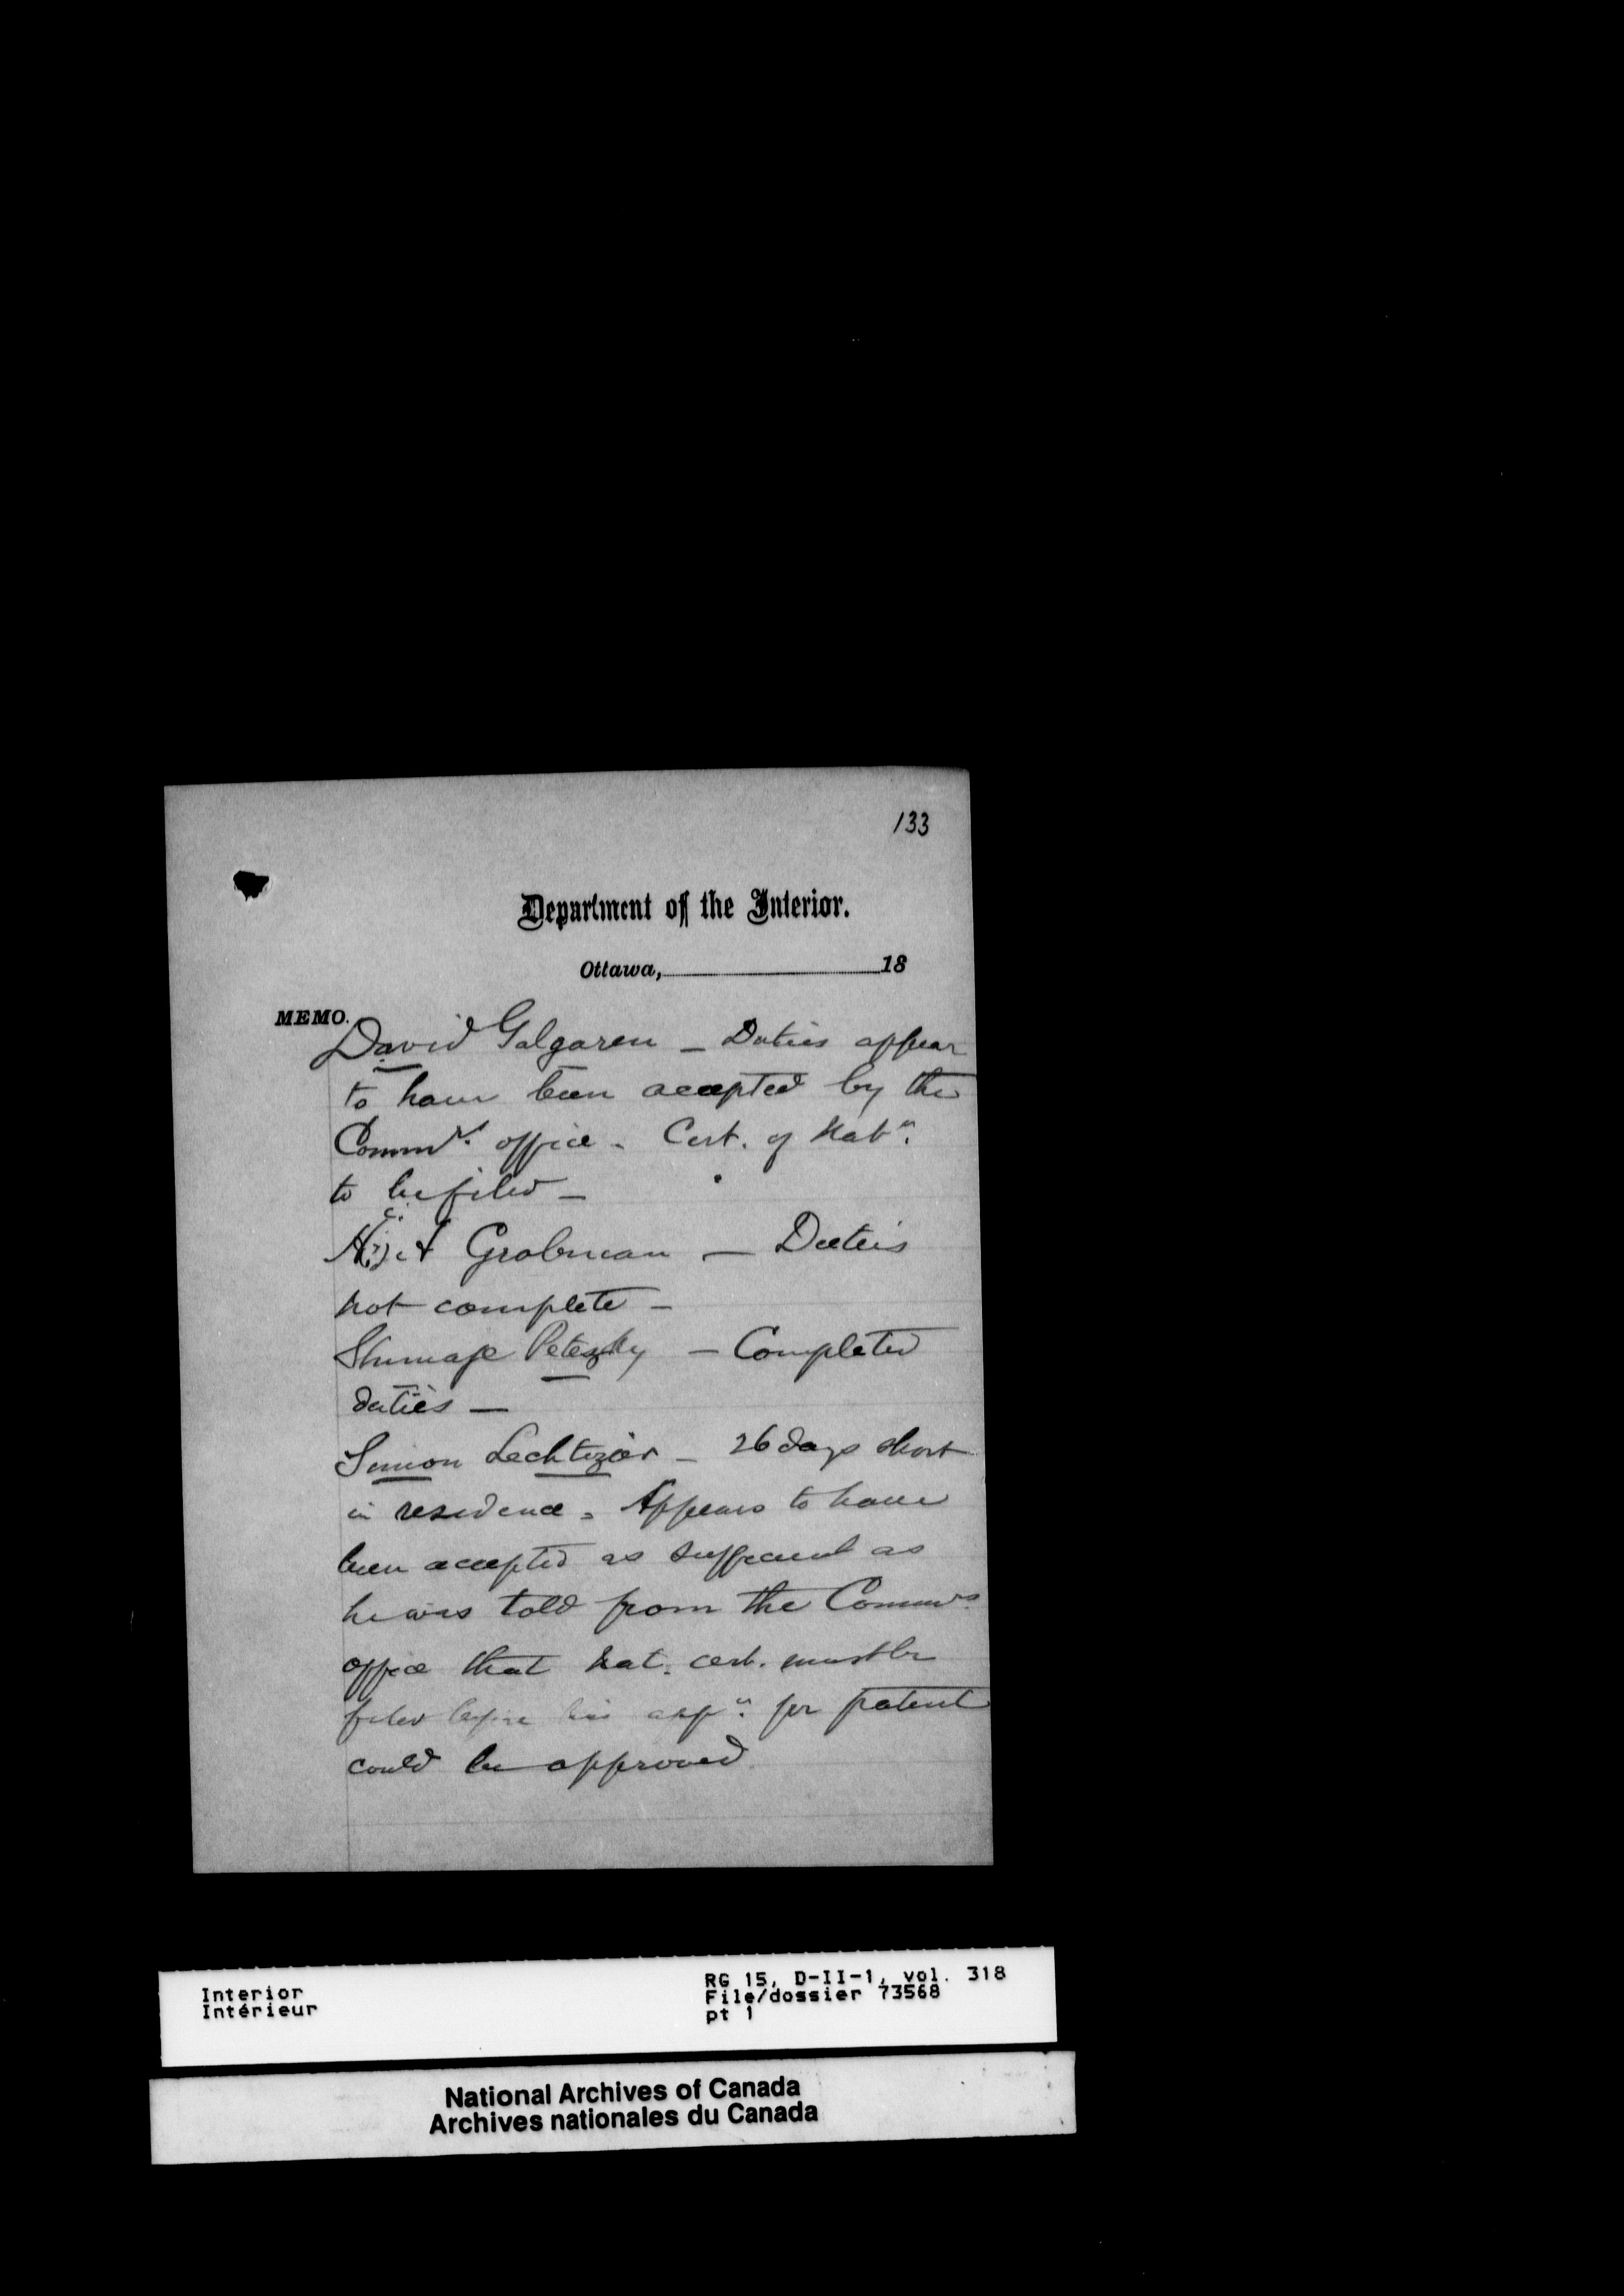 133
Department of the Interior.
Ottawa, 18
MEMO.
David Galgaren – Duties appear
to have been accepted by the
Commrs. office – Cert. of Natn.
to be filed –
Grobman – Duties
not complete –
Petezky – Completed
duties –
Simon Lechtzier – 26 days short
in residence – Appears to have
been accepted as sufficient as
he was told from the Commrs.
office that Nat. cert. must be
filed before his appn. for patent
could be approved
Interior
Intérieur
RG 15, D-II-1, vol. 318
File/dossier 73568
pt 1
National Archives of Canada
Archives nationales du Canada